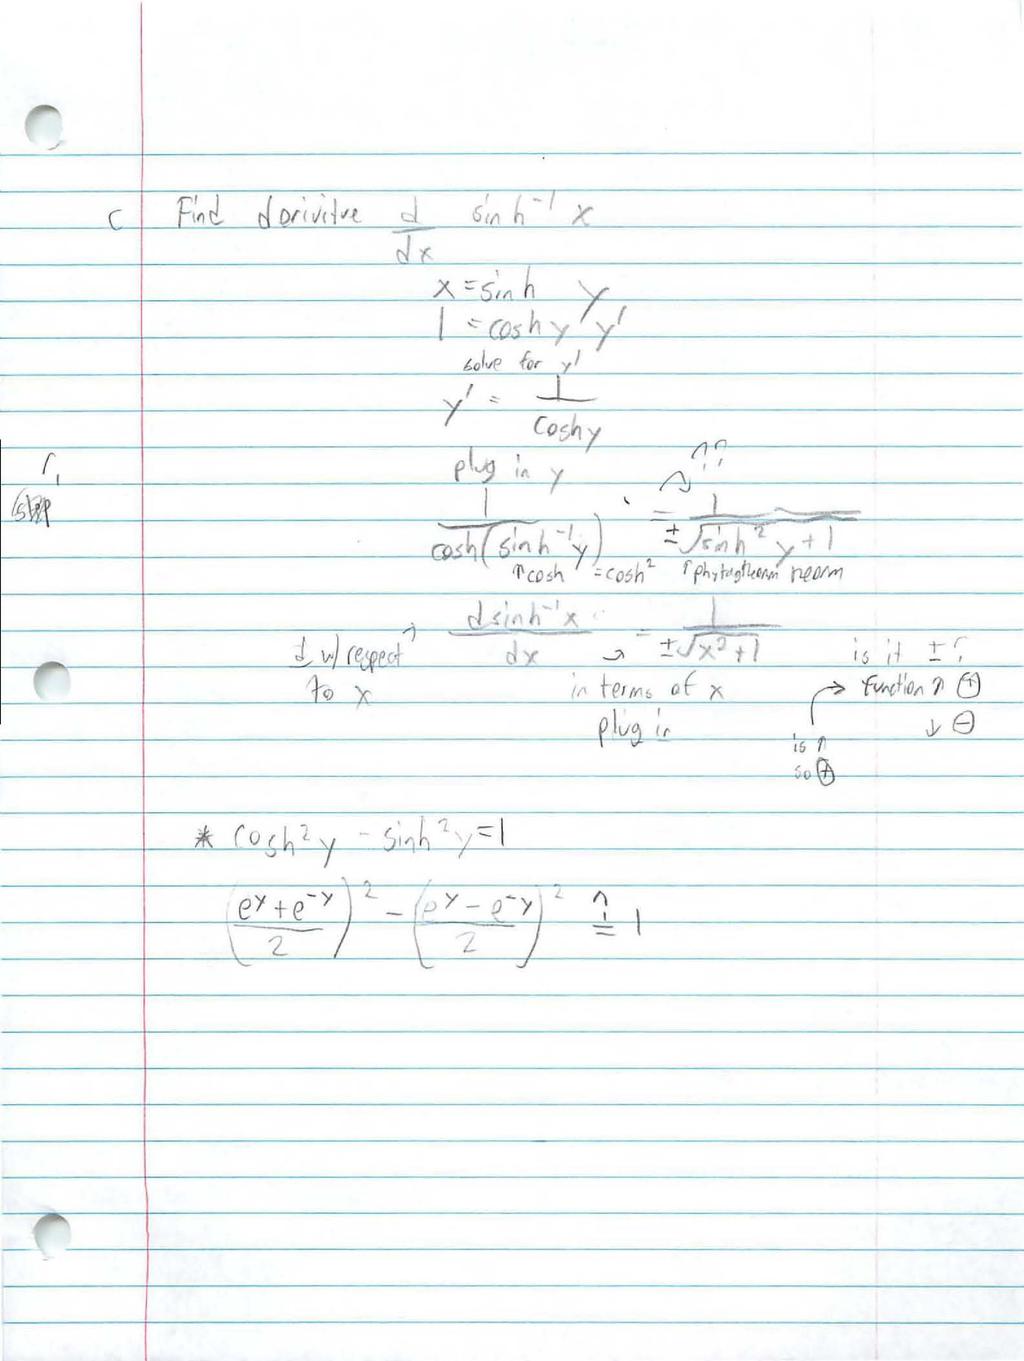 c Find derivitve d/dx sinh⁻¹ x
x = sinh y
1 = cosh y y'
solve for y'
y' = 1/cosh y
plug in y
step
??
1/cosh(sinh⁻¹y) = 1/±√sinh² y + 1
↑cosh = cosh² ↑phytagtheorm
d sinh⁻¹x/dx = 1/±√x² + 1
d w/ respect to x
→ in terms of x
plug in
is it ±?
→ function ↑ ⊕
↓ ⊖
is ↑
so ⊕
* cosh²y - sinh²y = 1
(eʸ + e⁻ʸ/2)² - (eʸ - e⁻ʸ/2)² ≟ 1